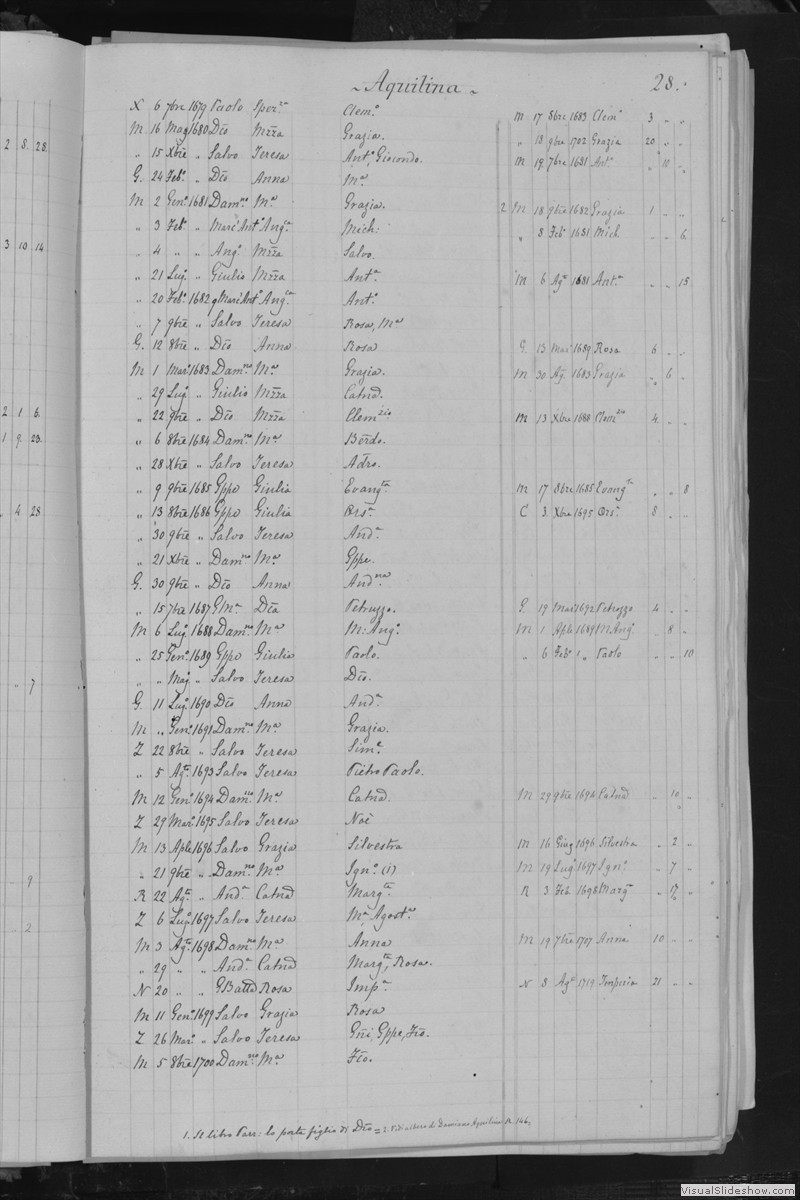 ~ Aquilina ~ 28.
X 6 7bre 1679 Paolo Sper.za Clem.o M 17 8bre 1683 Clem.o 3 „ „
M 16 Mag 1680 Dīo Mzza Grazia. „ 18 9bre 1702 Grazia 20 „ „
2 8 28. „ 15 Xbre „ Salvo Teresa Ant.o Giocondo. M 19 7bre 1681 Ant.o „ 10 „
G. 24 Feb.o „ Dīo Anna M.a
M 2 Gen.o 1681 Dam.no M.a Grazia. 2 M 18 9bre 1682 Grazia 1 „ „
„ 3 Feb.o „ Mare'Ant.o Ang.ca Mich: „ 8 Feb.o 1681 Mich „ „ 6
3 10 14. „ 4 „ „ Ang.o Mzza Salvo.
„ 21 Lug. „ Giulio Mzza Ant.a M 6 Ag.o 1681 Ant.a „ „ 15
„ 20 Feb.o 1682 Mare'Ant.o Ang.ca Ant.o
„ 7 9bre „ Salvo Teresa Rosa, M.a
G. 12 8bre „ Dīo Anna Rosa G 13 Mar 1689 Rosa 6 „ „
M 1 Mar. 1683 Dam.no M.a Grazia. M 30 Ag. 1683 Grazia „ 6 „
„ 29 Lug. „ Giulio Mzza Catnā.
2 1 6. „ 22 9bre „ Dīo Mzza Clem.zio M 13 Xbre 1688 Clem.zio 4 „ „
1 9 23. „ 6 8bre 1684 Dam.no M.a Bērdo.
„ 28 Xbre „ Salvo Teresa Adro.
„ 9 9bre 1685 Gppe Giulia Evang.ta M 17 8bre 1685 Evang.ta „ „ 8
„ 4 28 „ 13 8bre 1686 Gppe Giulia Ors.a C 3 Xbre 1695 Ors.a 8 „ „
„ 30 9bre „ Salvo Teresa And.a
„ 21 Xbre „ Dam.no M.a Gppe.
G. 30 9bre „ Dīo Anna And.na
„ 15 7bre 1687 GM.a Dīa Petruzzo. G 19 Mar. 1692 Petruzzo 4 „ „
M 6 Lug. 1688 Dam.no M.a M: Ang.a M 1 Aple 1689 M Ang. „ 8 „
„ 25 Gen.o 1689 Gppe Giulia Paolo. „ 6 Feb.o „ Paolo „ „ 10
„ 7 „ „ Mag. „ Salvo Teresa Dīo.
G. 11 Lug. 1690 Dīo Anna And.a
M „ Gen.o 1691 Dam.no M.a Grazia.
Z 22 8bre „ Salvo Teresa Sim.e
„ 5 Ag.o 1693 Salvo Teresa Pietro Paolo.
M 12 Gen.o 1694 Dam.no M.a Catnā. M 29 9bre 1694 Catnā „ 10 „
Z 29 Mar. 1695 Salvo Teresa Noè
M 13 Aple 1696 Salvo Grazia Silvestra M 16 Giug 1696 Silvestra „ 2 „
9 „ 21 9bre „ Dam.no M.a Ign.o (1) M 19 Lug. 1697 Ign.o „ 7 „
R 22 Ag.o „ And.a Catnā Marg.ta R 3 Feb. 1698 Marg.ta „ 17 „
2 Z 6 Lug. 1697 Salvo Teresa M.a Agost.a
M 3 Ag.o 1698 Dam.no M.a Anna M 19 7bre 1707 Anna 10 „ „
„ 29 „ „ And.a Catnā Marg.ta, Rosa.
N 20 „ „ GBattā Rosa Imp.a N 8 Ag.o 1719 Imperia 21 „ „
M 11 Gen.o 1699 Salvo Grazia Rosa
Z 26 Mar. „ Salvo Teresa Gñi, Gppe, Fco.
M 5 8bre 1700 Dam.no M.a Fco.
1. Il libro Parr: lo porta figlio di Dīo = 2. Vedi albero di Damiano Aquilina
VisualSlideshow.com